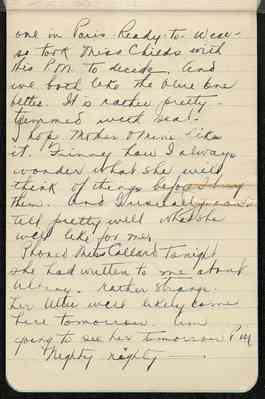 one in Paris Ready-to-Wear-
so took Miss Childs with
this P.M. to decide. And
we both like the blue one
better. It is rather pretty-
trimmed with seal-
I hope Mother o'mine likes
it. Funny how I always
wonder what she will
think of things before I buy
them. And I usually can
tell pretty well what she
will like for me.
Phoned Miss Collard tonight
she had written to me about
rather strange.
her letter will likely come
here tomorrow. am
going to see her tomorrow P.M.
Nighty nighty —